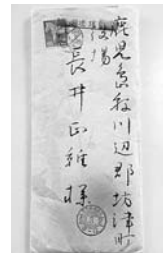 鹿児島縣川辺郡坊津町
役場
長井正雄様